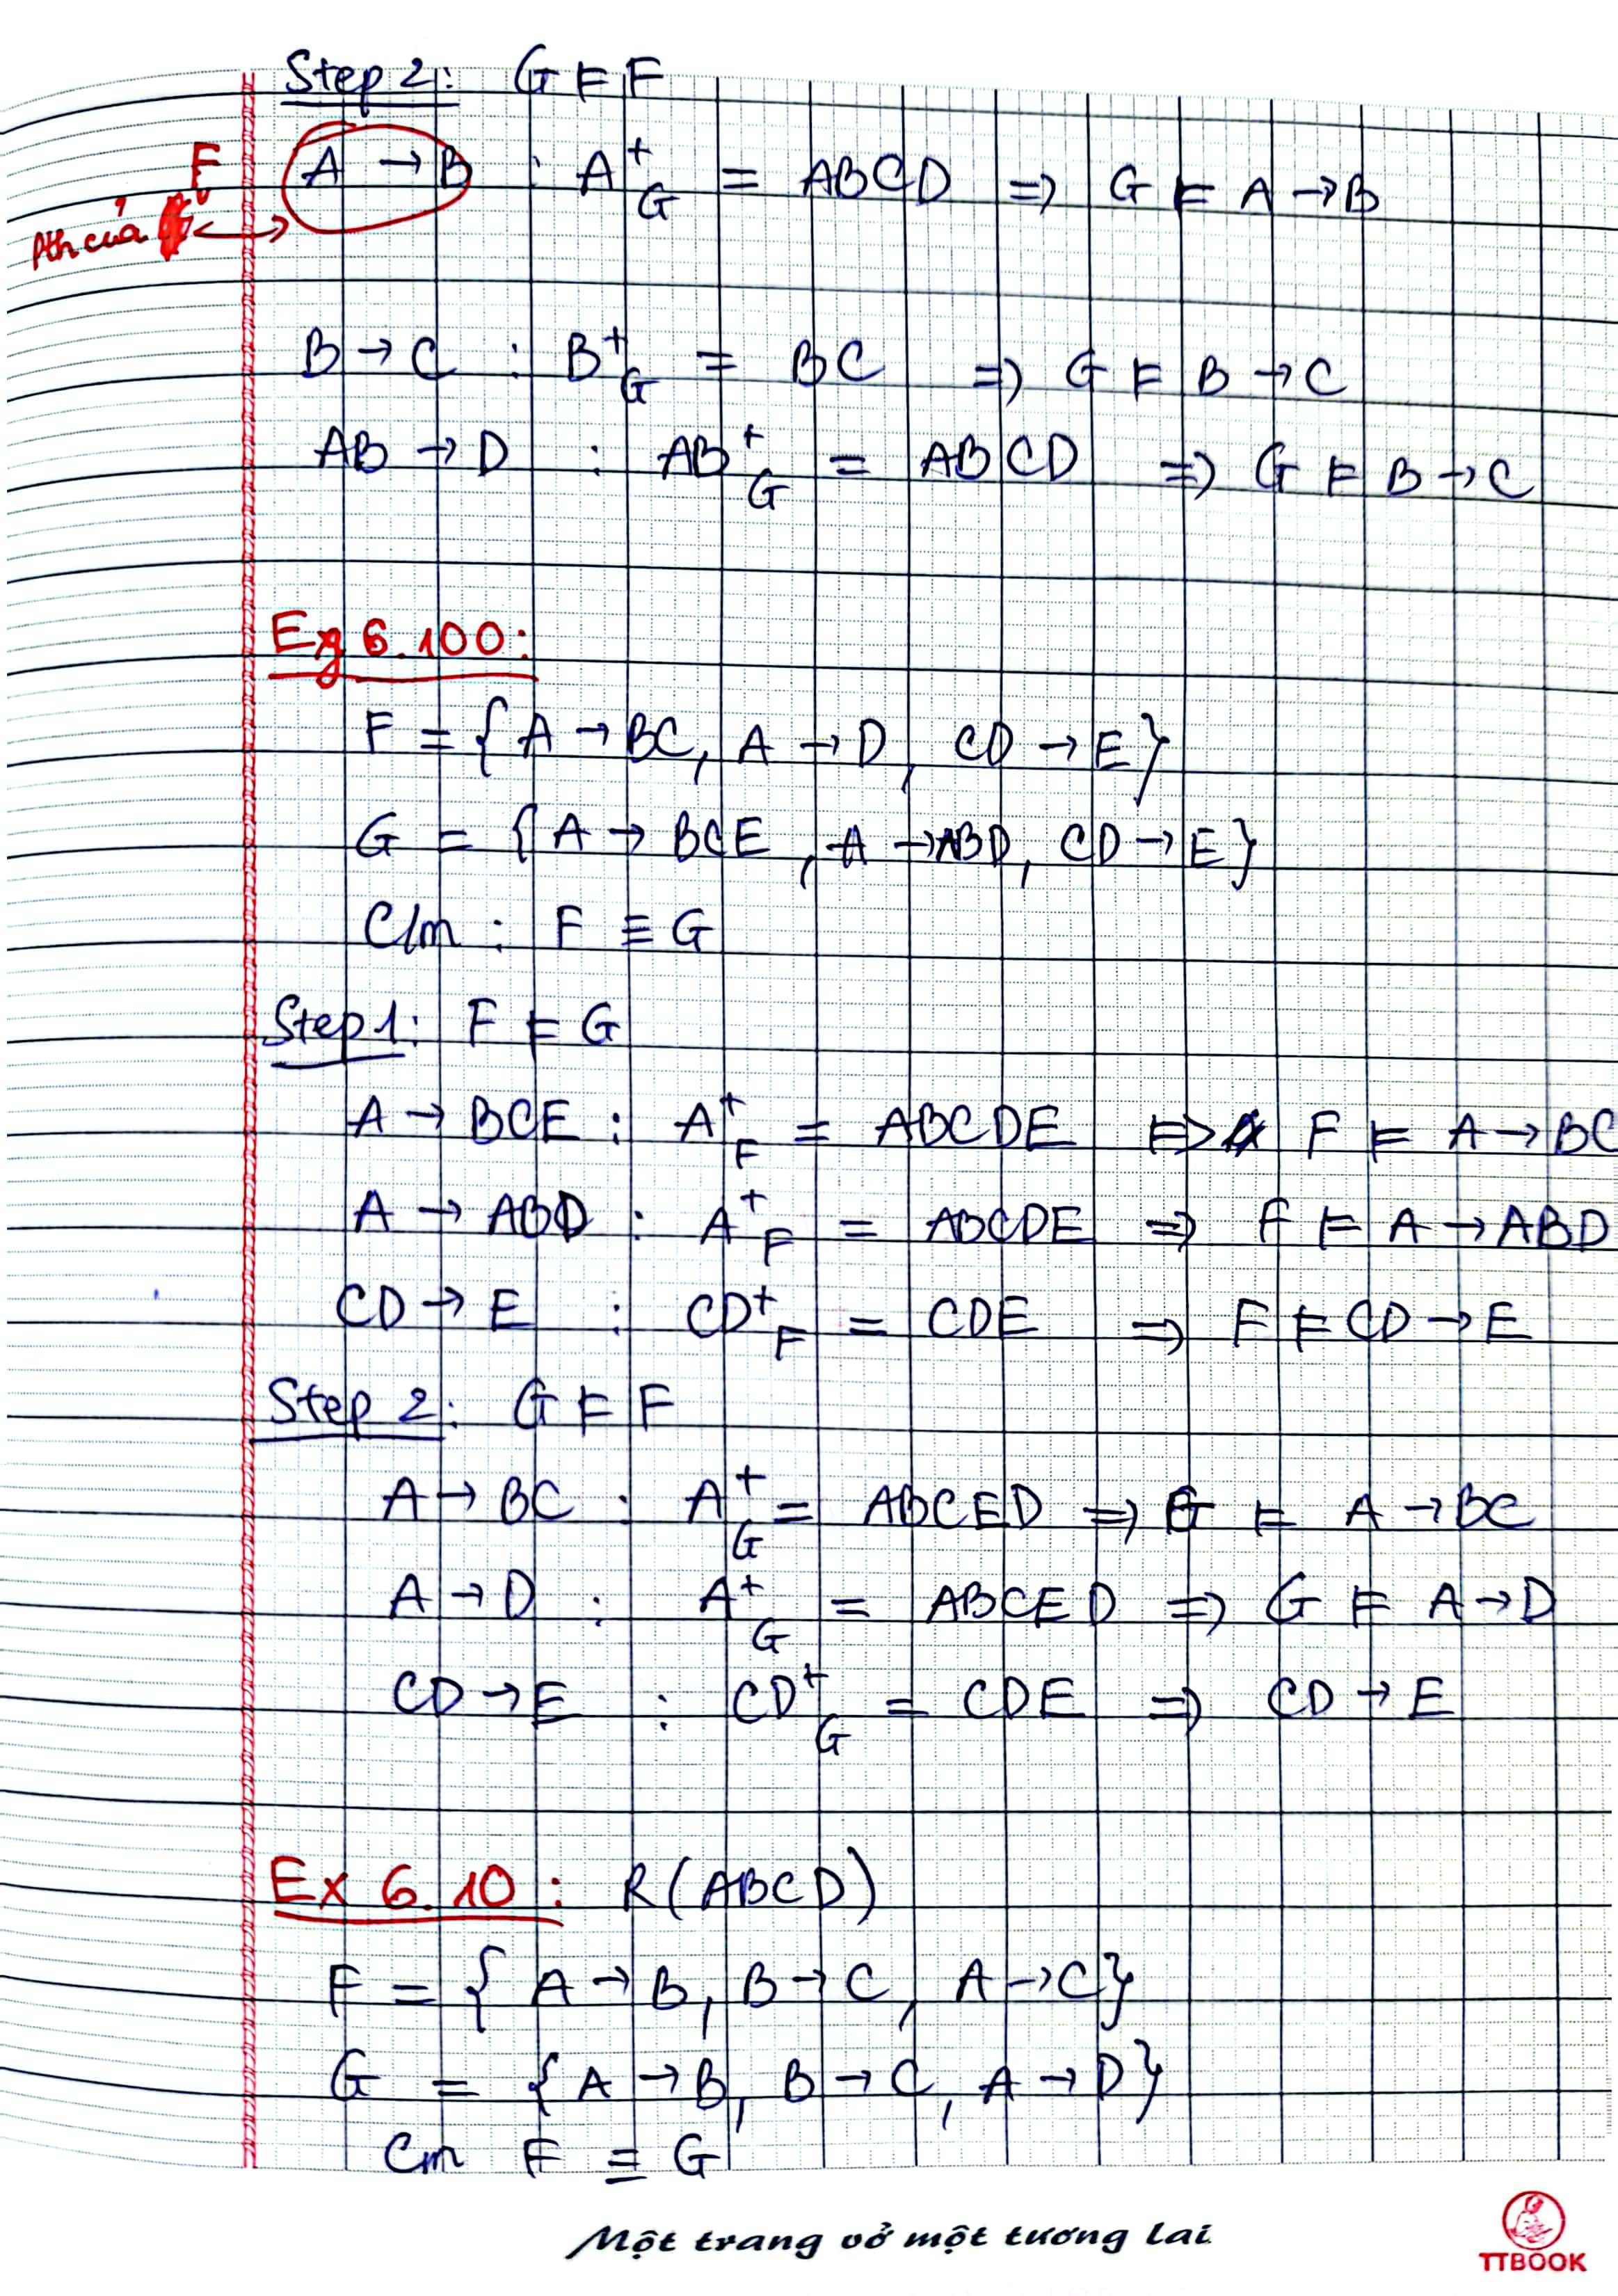 Step 2: G ⊨ F
F
A → B : A⁺G = ABCD => G ⊨ A → B
Pth của
B → C : B⁺G = BC => G ⊨ B → C
AB → D : AB⁺G = ABCD => G ⊨ B → C
Eg 6.100:
F = { A → BC, A → D, CD → E}
G = { A → BCE, A → ABD, CD → E}
C/m : F ≡ G
Step 1: F ⊨ G
A → BCE : A⁺F = ABCDE => F ⊨ A → BC
A → ABD : A⁺F = ABCDE => F ⊨ A → ABD
CD → E : CD⁺F = CDE => F ⊨ CD → E
Step 2: G ⊨ F
A → BC : A⁺G = ABCED => G ⊨ A → BC
A → D : A⁺G = ABCED => G ⊨ A → D
CD → E : CD⁺G = CDE => CD → E
Ex 6.10 : R(ABCD)
F = { A → B, B → C, A → C}
G = { A → B, B → C, A → D}
Cm F ≡ G
Một trang vở một tương lai
TTBOOK